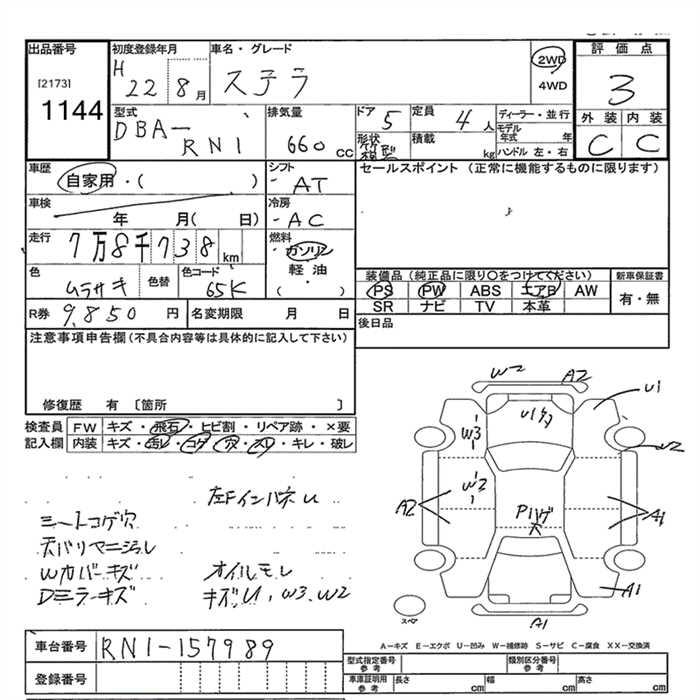 出品番号 初度登録年月 車名・グレード 評価点
[2173] H 22 8月 ステラ 2WD 3
1144 4WD
型式 排気量 ドア 5 定員 4人 ディーラー・並行 外装 内装
DBA- モデル年式 年 C C
RN1 660cc 形状 積載 kg ハンドル 左・右
車歴 シフト セールスポイント (正常に機能するものに限ります)
自家用・( ) AT
車検 冷房
年 月( 日) AC
走行 7万8千738km 燃料
ガソリン
色 ムラサキ 色替 色コード 65K 軽油
( )
装備品 (純正品に限り○をつけてください) 新車保証書
PS PW ABS エアB AW 有・無
SR ナビ TV 本革
R券 9,850円 名変期限 月 日 後日品
注意事項申告欄(不具合内容等は具体的に記入して下さい)
修復歴 有 〔箇所 〕
検査員 FW キズ・飛石・ヒビ割・リペア跡・×要
記入欄 内装 キズ・汚レ・コゲ・穴・スレ・キレ・破レ
W2 A2
U1
U1キタ
W3
W2
W2
A2
Pハゲ
大
A1
A1
スペア
A1
左FインパネU
シートコゲ穴
天バリマニジュレ
Wカバーキズ オイルモレ
Dミラーキズ キズU、W3、W2
A-キズ E-エクボ U-凹み W-補修跡 S-サビ C-腐食 XX-交換済
車台番号 RN1-157989
登録番号
型式指定番号 参考 類別区分番号 参考
車庫証明用 参考 長さ cm 幅 cm 高さ cm